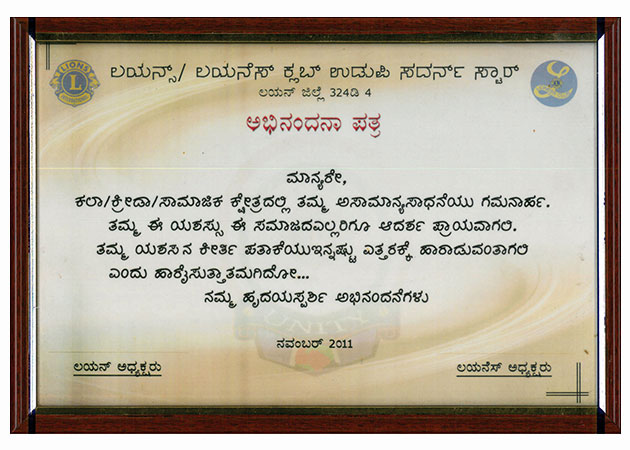 ಲಯನ್ಸ್/ ಲಯನೆಸ್ ಕ್ಲಬ್ ಉಡುಪಿ ಸದರ್ನ್ ಸ್ಟಾರ್
ಲಯನ್ ಜಿಲ್ಲೆ 324ಡಿ 4
LIONS
L
INTERNATIONAL
ಅಭಿನಂದನಾ ಪತ್ರ
ಮಾನ್ಯರೇ,
ಕಲಾ/ಕ್ರೀಡಾ/ಸಾಮಾಜಿಕ ಕ್ಷೇತ್ರದಲ್ಲಿ ತಮ್ಮ ಅಸಾಮಾನ್ಯಸಾಧನೆಯು ಗಮನಾರ್ಹ.
ತಮ್ಮ ಈ ಯಶಸ್ಸು ಈ ಸಮಾಜದಎಲ್ಲರಿಗೂ ಆದರ್ಶ ಪ್ರಾಯವಾಗಲಿ.
ತಮ್ಮ ಯಶಸಿನ ಕೀರ್ತಿ ಪತಾಕೆಯುಇನ್ನಷ್ಟು ಎತ್ತರಕ್ಕೆ ಹಾರಾಡುವಂತಾಗಲಿ
ಎಂದು ಹಾರೈಸುತ್ತಾತಮಗಿದೋ...
ನಮ್ಮ ಹೃದಯಸ್ಪರ್ಶಿ ಅಭಿನಂದನೆಗಳು
UNITY
ನವಂಬರ್ 2011
ಲಯನ್ ಅಧ್ಯಕ್ಷರು
ಲಯನೆಸ್ ಅಧ್ಯಕ್ಷರು